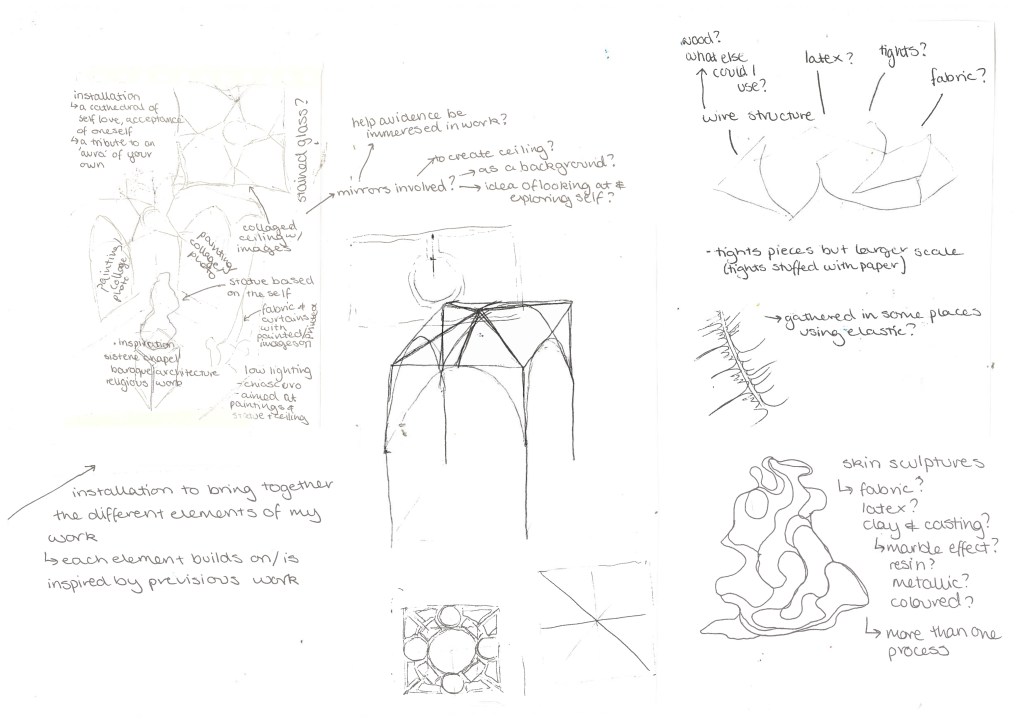 installation
↳ a cathedral of
self love, acceptance
of oneself
↳ a tribute to an
'aura' of your
own
stained glass?
collaged
ceiling w/
images
painting/
collage/
photo
painting/
collage/
photo
statue based
on the self
fabric &
curtains
with
painted/
images on
• inspiration
sistene chapel/
baroque architecture
religious work
low lighting
- chiascuro
- aimed at
paintings &
statue + ceiling
installation to bring together
the different elements of my
work
↳ each element builds on/is
inspired by previsious work
help avidence be
immeresed in work?
mirrors involved?
→ to create ceiling?
→ as a background?
→ idea of looking at &
exploring self?
wood?
what else
could I
use?
wire structure
latex?
tights?
fabric?
- tights pieces but larger scale
(tights stuffed with paper)
→ gathered in some places
using elastic?
skin sculptures
↳ fabric?
latex?
clay & casting?
↳ marble effect?
resin?
metallic?
coloured?
↳ more than one
process